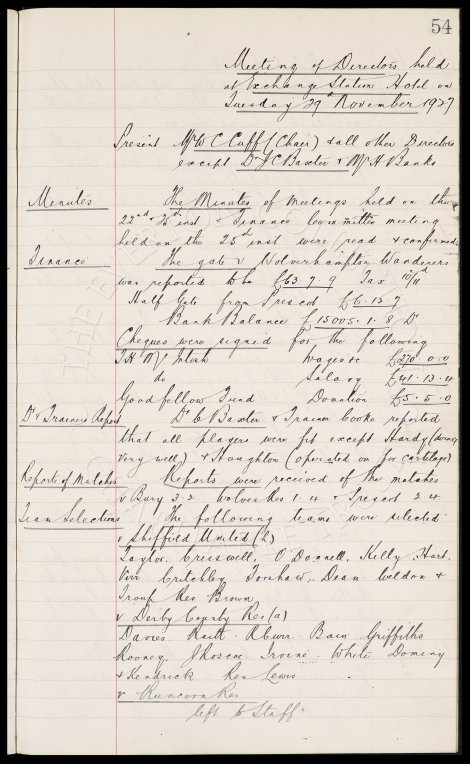 54
Meeting of Directors held
at Exchange Station Hotel on
Tuesday 29th November 1927
Present Mr W C Cuff (Chair) & all other Directors
except Dr J C Baxter & Mr A Banks
Minutes The Minutes of Meetings held on the
22nd & 26th inst & Finance Committee meeting
held on the 25th inst were read & confirmed
Finance The gate v Wolverhampton Wanderers
was reported to be £63 7 9 Tax 10/11d
Half Gate from Prescot £6. 12 7
Bank Balance £15005. 1. 8 Dr
Cheques were signed for the following
T.H. McIntosh Wages &c £270 0.0
do Salary £41. 13. 4
Goodfellow Fund Donation £5. 5. 0
Dr & Trainers Report Dr C Baxter & Trainer Cooke reported
that all players were fit except Hardy
very well) & Houghton (operated on for cartilage)
Reports of Matches Reports were received of the matches
v Bury 3. 2. Wolves Res 1. 4 & Prescot 2. 4
Team Selections The following teams were selected
v Sheffield United (h)
Taylor. Cresswell, O'Donnell, Kelly, Hart.
Virr Critchley Forshaw, Dean Weldon &
Troup Res Brown
v Derby County Res (a)
Davies. Raitt. Bain Griffiths
Rooney. J Roscoe. Irvine. White Dominy
& Kendrick Res Lewis
v Runcorn Res
left to Staff